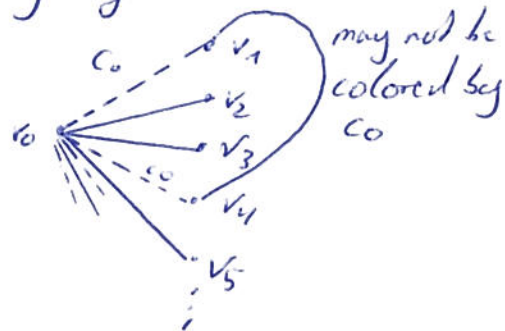 c₀
v₁
may not be
colored by
c₀
v₂
v₀
v₃
c₀
v₄
v₅